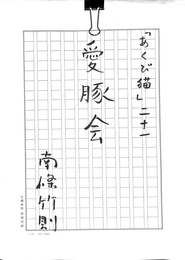 「あくび猫」二十一
愛豚会
南條竹則